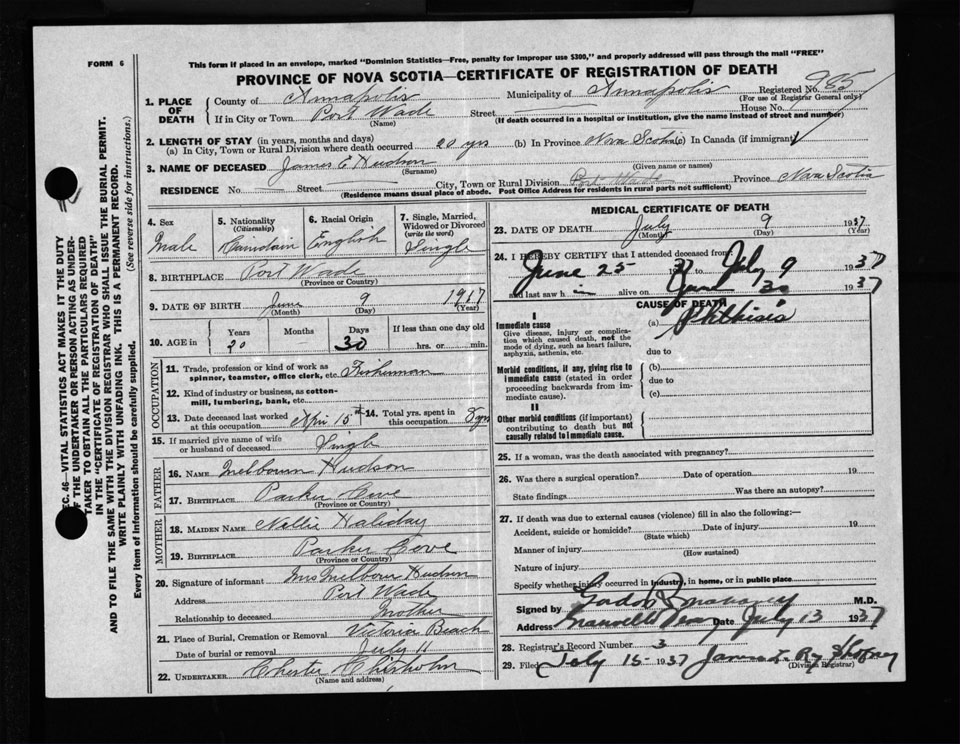 FORM 6
This form if placed in an envelope, marked "Dominion Statistics—Free, penalty for improper use $300," and properly addressed will pass through the mail "FREE"
PROVINCE OF NOVA SCOTIA—CERTIFICATE OF REGISTRATION OF DEATH
Registered No. 985
(For use of Registrar General only)
1. PLACE OF DEATH
County of Annapolis Municipality of Annapolis
If in City or Town Port Wade Street House No.
(Name) (If death occurred in a hospital or institution, give the name instead of street and number)
2. LENGTH OF STAY (in years, months and days)
(a) In City, Town or Rural Division where death occurred 20 yrs (b) In Province Nova Scotia (c) In Canada (if immigrant)
3. NAME OF DECEASED James E Hudson
(Surname) (Given name or names)
RESIDENCE No. Street City, Town or Rural Division Port Wade Province Nova Scotia
(Residence means usual place of abode. Post Office Address for residents in rural parts not sufficient)
4. Sex Male
5. Nationality (Citizenship)
6. Racial Origin English
7. Single, Married, Widowed or Divorced (write the word) Single
8. BIRTHPLACE Port Wade
(Province or Country)
9. DATE OF BIRTH June 9 1917
(Month) (Day) (Year)
10. AGE in Years 20 Months Days 30 If less than one day old hrs. or min.
OCCUPATION
11. Trade, profession or kind of work as spinner, teamster, office clerk, etc. Fisherman
12. Kind of industry or business, as cotton-mill, lumbering, bank, etc.
13. Date deceased last worked at this occupation 15 14. Total yrs. spent in this occupation yrs
15. If married give name of wife or husband of deceased Single
FATHER
16. NAME Melbourn Hudson
17. BIRTHPLACE Parker Cove
(Province or Country)
MOTHER
18. MAIDEN NAME Nellie Haliday
19. BIRTHPLACE Parker Cove
(Province or Country)
20. Signature of informant Mrs Melbourn Hudson
Address Port Wade
Relationship to deceased Mother
21. Place of Burial, Cremation or Removal Victoria Beach
Date of burial or removal July 11
22. UNDERTAKER Chester Chisholm
(Name and address)
MEDICAL CERTIFICATE OF DEATH
23. DATE OF DEATH July 9 1937
(Month) (Day) (Year)
24. I HEREBY CERTIFY that I attended deceased from
June 25 37 to July 9 1937
and last saw h im alive on June 30 1937
CAUSE OF DEATH
I
Immediate cause (a) Phthisis
Give disease, injury or complication which caused death, not the mode of dying, such as heart failure, asphyxia, asthenia, etc.
due to
Morbid conditions, if any, giving rise to immediate cause (stated in order proceeding backwards from immediate cause).
(b)
due to
(c)
II
Other morbid conditions (if important) contributing to death but not causally related to immediate cause.
25. If a woman, was the death associated with pregnancy?
26. Was there a surgical operation? Date of operation 19
State findings Was there an autopsy?
27. If death was due to external causes (violence) fill in also the following:—
Accident, suicide or homicide? Date of injury 19
(State which)
Manner of injury
(How sustained)
Nature of injury
Specify whether injury occurred in industry, in home, or in public place
Signed by M.D.
Address Granville Date July 13 1937
28. Registrar's Record Number 3
29. Filed July 15-1937
(Division Registrar)
SEC. 46—VITAL STATISTICS ACT MAKES IT THE DUTY
OF THE UNDERTAKER OR PERSON ACTING AS UNDER-
TAKER TO OBTAIN ALL THE PARTICULARS REQUIRED
IN THE "CERTIFICATE OF REGISTRATION OF DEATH"
AND TO FILE THE SAME WITH THE DIVISION REGISTRAR WHO SHALL ISSUE THE BURIAL PERMIT.
WRITE PLAINLY WITH UNFADING INK. THIS IS A PERMANENT RECORD.
Every item of information should be carefully supplied. (See reverse side for instructions.)